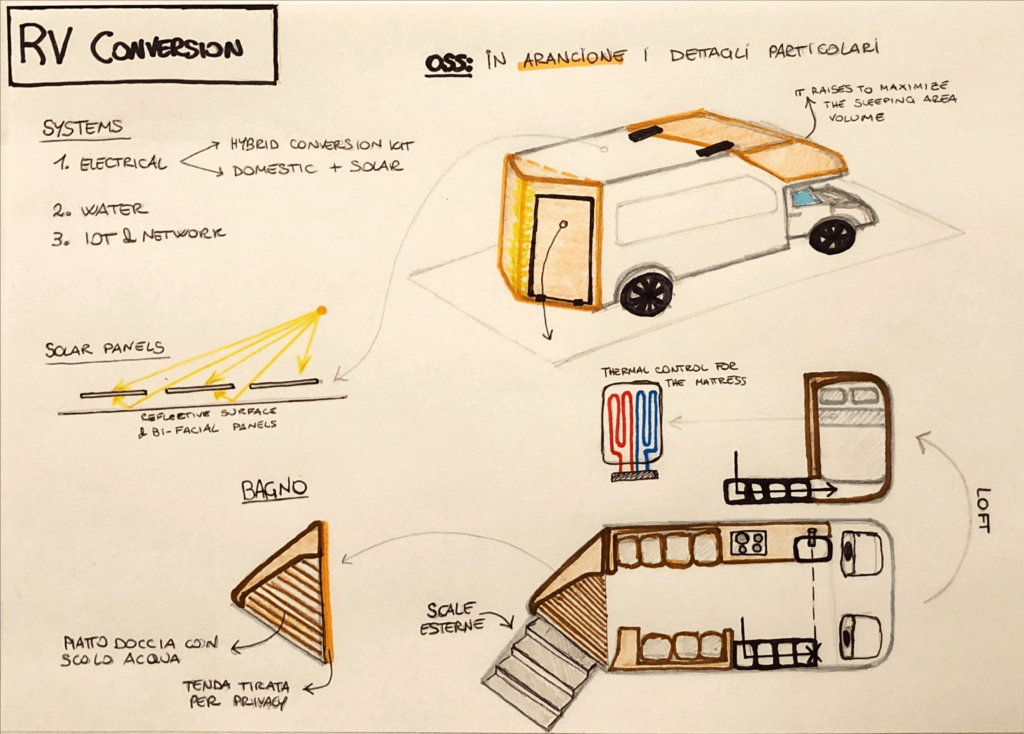 RV CONVERSION
OSS: IN ARANCIONE I DETTAGLI PARTICOLARI
IT RAISES TO MAXIMIZE
THE SLEEPING AREA
VOLUME
SYSTEMS
1. ELECTRICAL
HYBRID CONVERSION KIT
DOMESTIC + SOLAR
2. WATER
3. IOT & NETWORK
SOLAR PANELS
REFLECTIVE SURFACE
& BI-FACIAL PANELS
THERMAL CONTROL FOR
THE MATRESS
LOFT
BAGNO
SCALE
ESTERNE
PIATTO DOCCIA CON
SCOLO ACQUA
TENDA TIRATA
PER PRIVACY